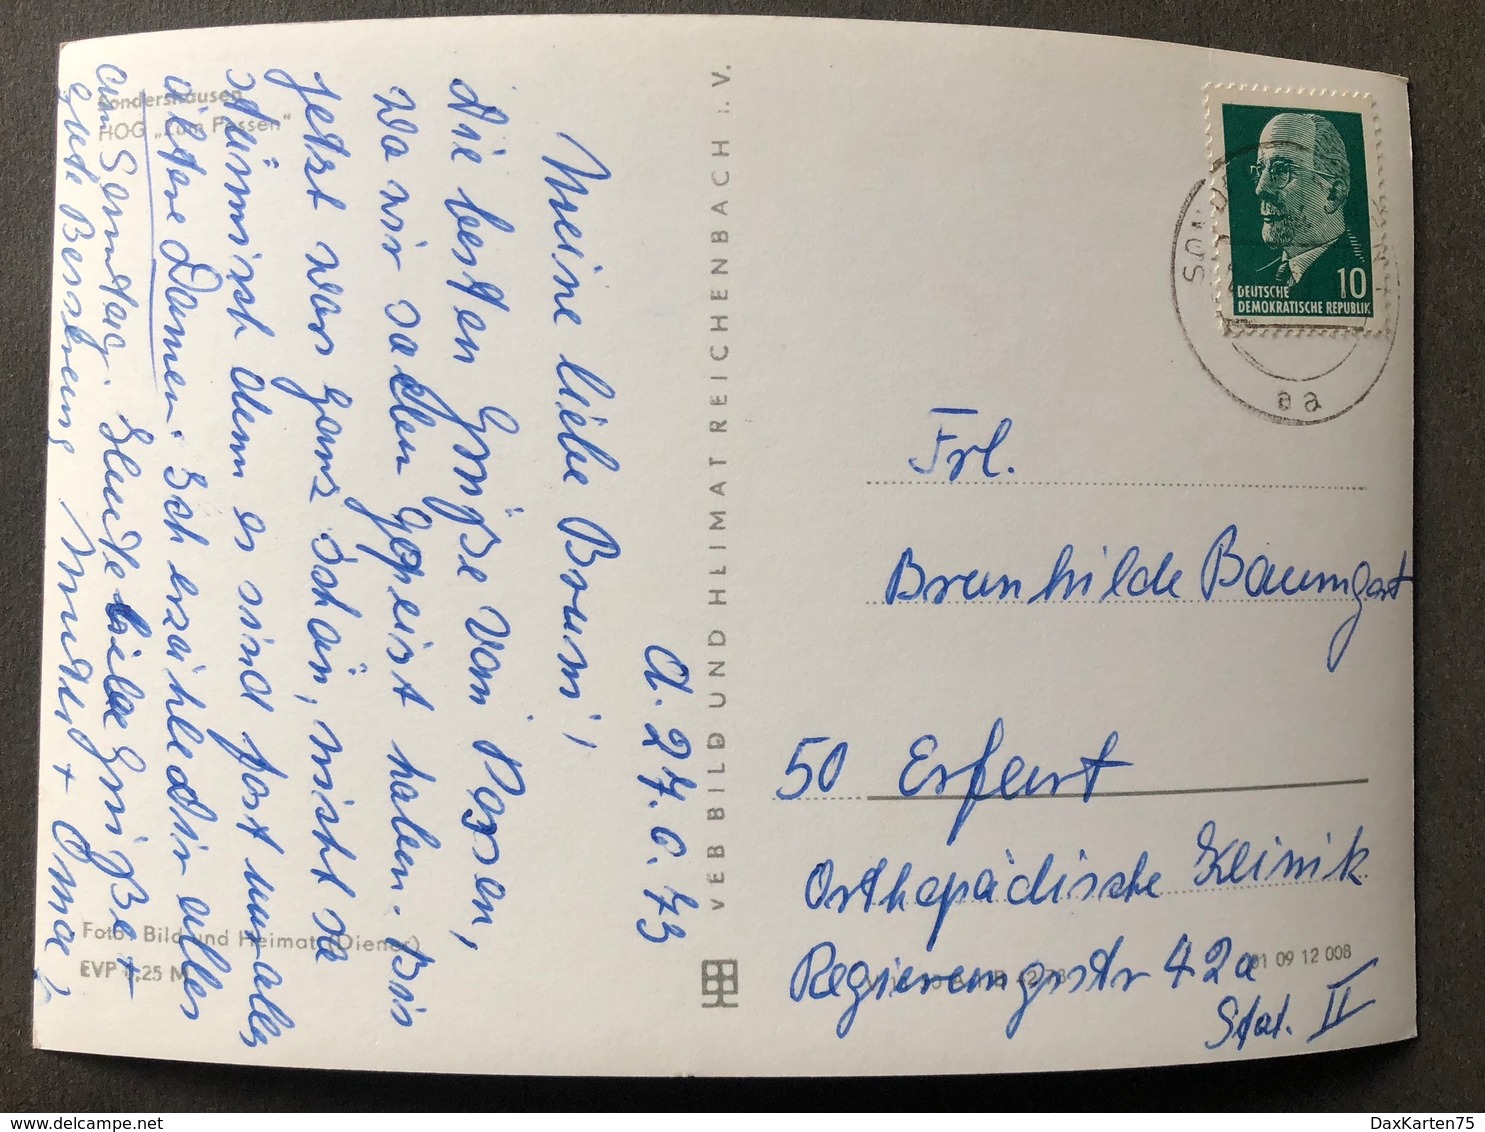 Sondershausen
HOG „Zum Possen“
d. 27.6.73
Meine liebe Bruni,
die besten Grüße vom Possen,
wo wir gespeist haben. Bis
jetzt war ganz schön, nicht so
stürmisch denn es sind fast nur alles
ältere Damen. Ich erzähle dir alles
am Sonntag. Heute liebe Grüße +
gute Besserung Mutti + Oma
Foto: Bild und Heimat (Diener)
EVP 0,25 M
VEB BILD UND HEIMAT REICHENBACH i. V.
10
DEUTSCHE
DEMOKRATISCHE REPUBLIK
aa
Frl.
Brunhilde Baumgart
50 Erfurt
Orthopädische Klinik
Regierungsstr 42a
Stat. II
01 09 12 008
DaxKarten75